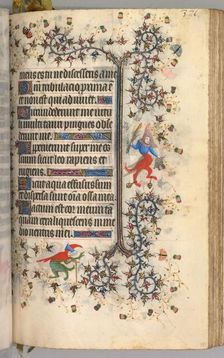 meus es tu ne discesseris a me
tribulacio proxima e
et non est qui adiuuet
me uitu
li multi tauri pingues obse
super me os
suum sicut leo rapiens et
rugiens
Sicut aqua effusus sum
et dispersa sunt omnia ossa
Factum est cor meum tam
cera liquescens in me
dio uentris mei